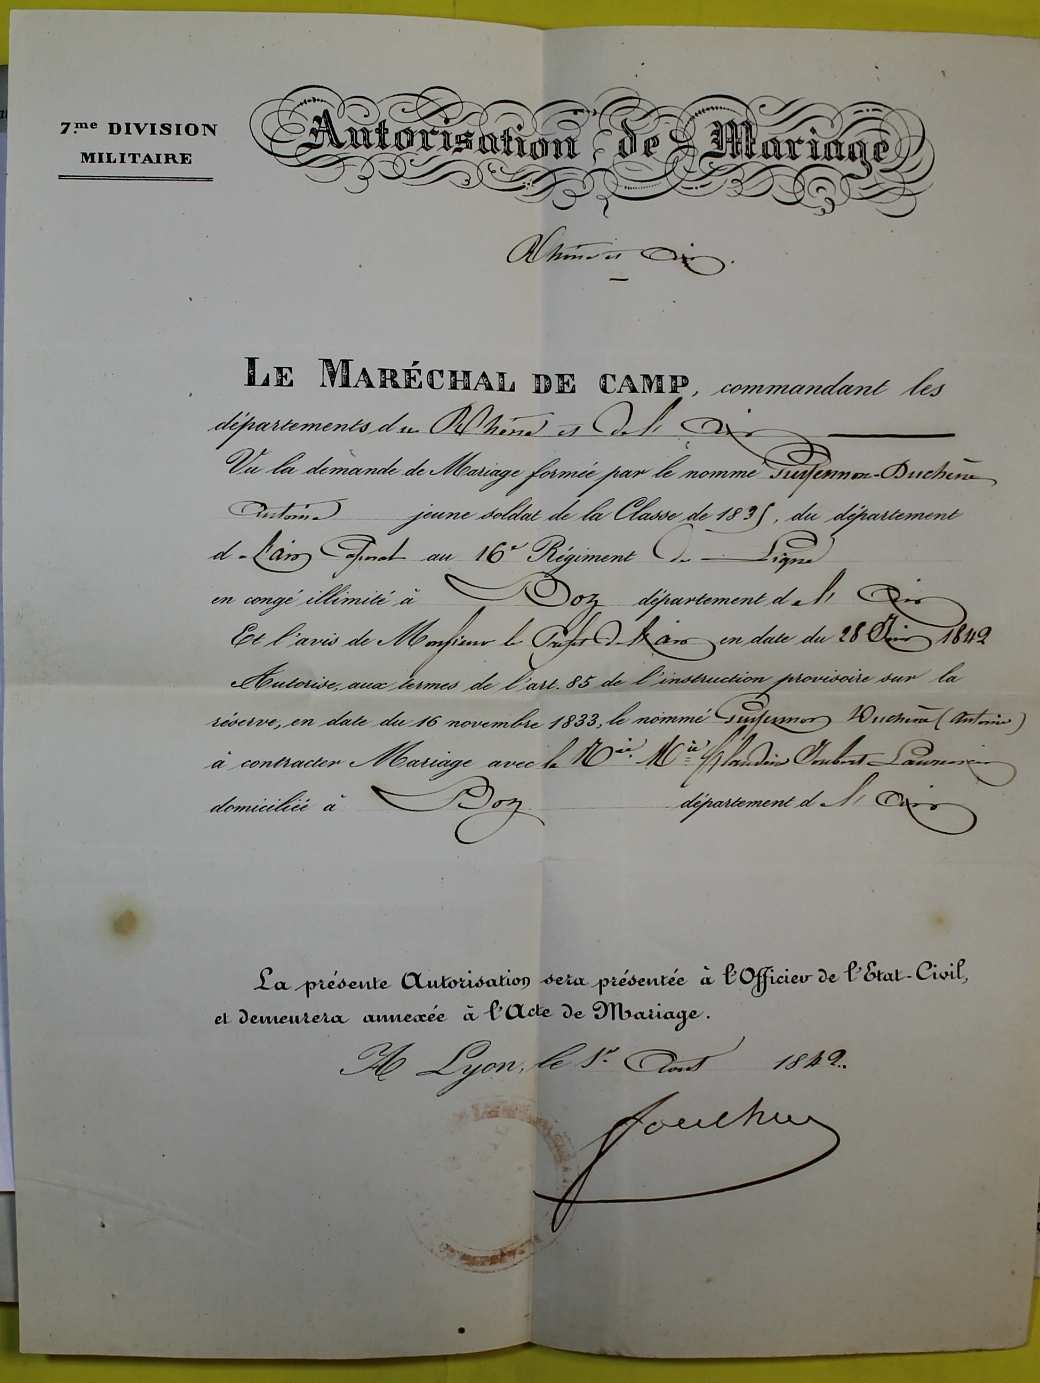 7.me DIVISION
MILITAIRE
Autorisation de Mariage
Rhône et Ain.
LE MARÉCHAL DE CAMP, commandant les
départements du Rhône et de l'Ain
Vu la demande de Mariage formée par le nommé Duchêne
Antoine jeune soldat de la Classe de 1835, du département
d l'ain au 16e Régiment de Ligne
en congé illimité à Boz département de l'Ain
Et l'avis de Monsieur le Préfet de l'ain en date du 28 Juin 1842
Autorise, aux termes de l'art. 85 de l'instruction provisoire sur la
réserve, en date du 16 novembre 1833, le nommé Duchêne (Antoine)
à contracter Mariage avec la Née Mie Claudine Joubert Laurencin
domiciliée à Boz département d l'Ain
La présente Autorisation sera présentée à l'Officier de l'Etat-Civil,
et demeurera annexée à l'Acte de Mariage.
A Lyon, le 1er Aout 1842.